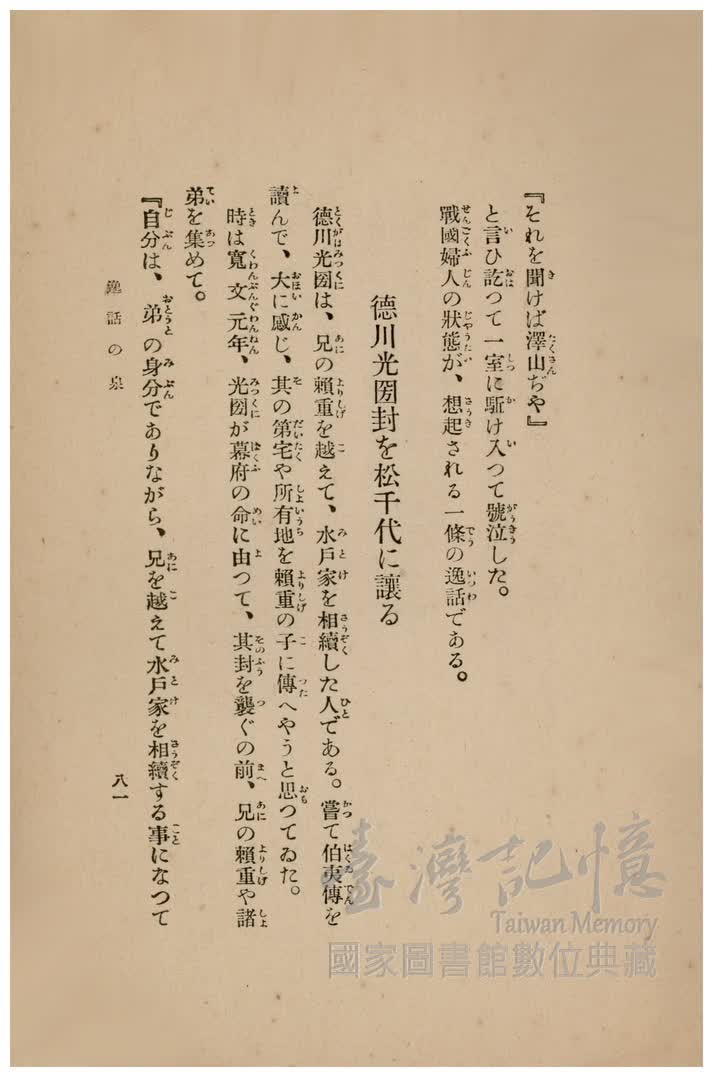 『それを聞けば澤山ぢや』
と言ひ訖つて一室に駈け入つて號泣した。
戰國婦人の狀態が、想起される一條の逸話である。
德川光圀封を松千代に讓る
德川光圀は、兄の賴重を越えて、水戶家を相續した人である。嘗て伯夷傳を
讀んで、大に感じ、其の第宅や所有地を賴重の子に傳へやうと思つてゐた。
時は寬文元年、光圀が幕府の命に由つて、其封を襲ぐの前、兄の賴重や諸
弟を集めて。
『自分は、弟の身分でありながら、兄を越えて水戶家を相續する事になつて
逸話の泉
八一
臺灣記憶
Taiwan Memory
國家圖書館數位典藏